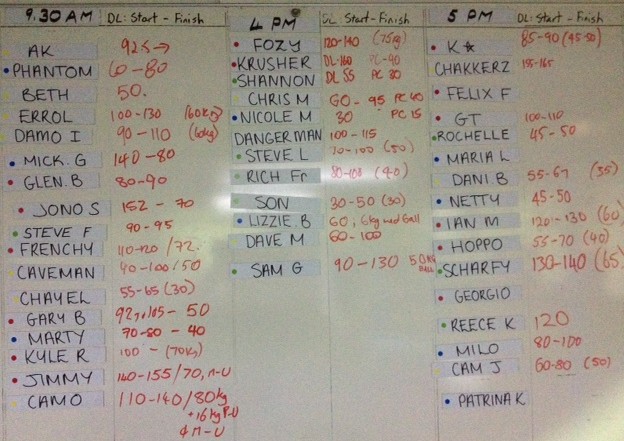 9.30 AM DL: Start - Finish
AK 92.5 →
PHANTOM 60-80
BETH 50.
ERROL 100-130 (60kg)
DAMO I 90-110
MICK. G 140-80
GLEN. B 80-90
JONO S 152 - 70
STEVE F 90-95
FRENCHY 110-120 /72.
CAVEMAN 40-100/50
CHAYEL 55-65 (30)
GARY B 92.5, 105 - 50
MARTY 70-80 - 40
KYLE R 100 - (70kg)
JIMMY 140-155/70, n-U
CAMO 110-140/80kg
+16kg P-U
4 n-U
4 PM DL Start - Finish
FOZY 120-140 (75kg)
KRUSHER DL-160 PC-90
SHANNON DL 55 PC 30
CHRIS M 60 - 95 PC 40
NICOLE M 30 PC 15
DANGERMAN 100-115
STEVE L 70-100 (50)
RICH Fr 80-100 (40)
SON 30-50 (30)
LIZZIE. B 60, 6kg med ball
DAVE M 60-100
SAM G 90-130 50kg
5 PM DL: Start - Finish
K☆ 85-90 (45-50)
CHAKKERZ 155-165
FELIX F
GT 100-110
ROCHELLE 45-50
MARIA L
DANI. B 55-67 (35)
NETTY 45-50
IAN M 120-130 (60)
HOPPO 55-70 (40)
SCHARFY 130-140 (65)
GEORGIO
REECE K 120
MILO 80-100
CAM J 60-80 (50)
PATRINA K